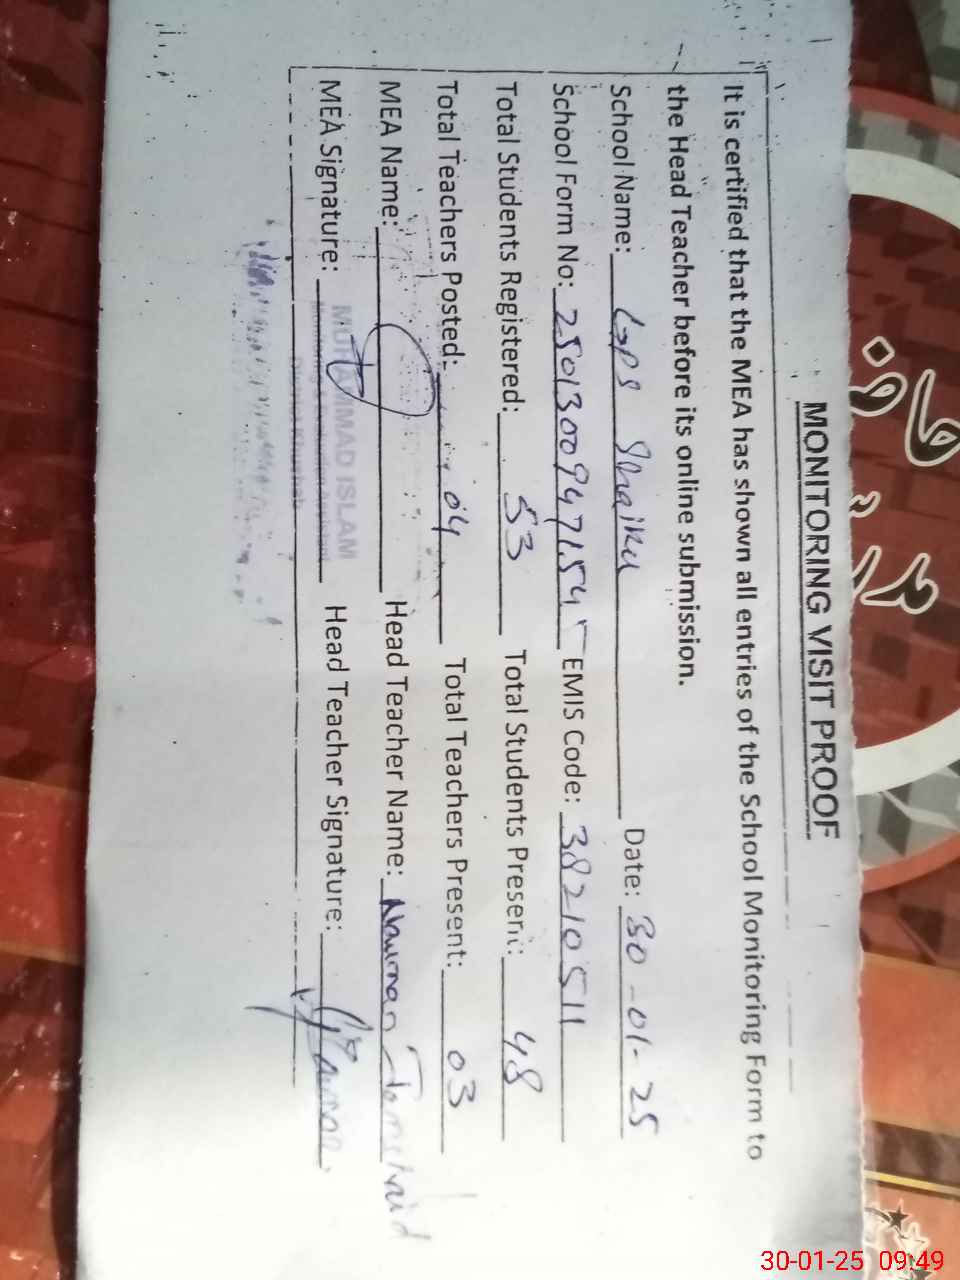 MONITORING VISIT PROOF
It is certified that the MEA has shown all entries of the School Monitoring Form to
the Head Teacher before its online submission.
School Name: GPS Shaiku Date: 30-01-25
School Form No: EMIS Code: 38210511
Total Students Registered: 53 Total Students Present: 48
Total Teachers Posted: 04 Total Teachers Present: 03
MEA Name: Head Teacher Name: Nauman
MEA Signature: Head Teacher Signature:
MUHAMMAD ISLAM
30-01-25 09:49